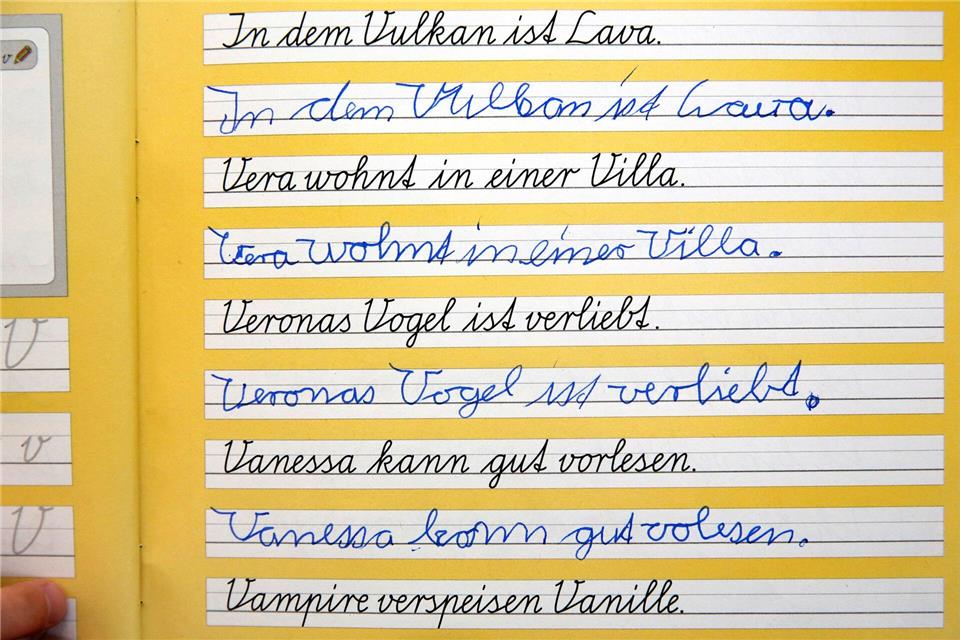 v
In dem Vulkan ist Lava.
In dem Vulkan ist Lava.
Vera wohnt in einer Villa.
Vera wohnt in einer Villa.
V
Veronas Vogel ist verliebt.
Veronas Vogel ist verliebt.
v
Vanessa kann gut vorlesen.
Vanessa kann gut volesen.
V
Vampire verspeisen Vanille.